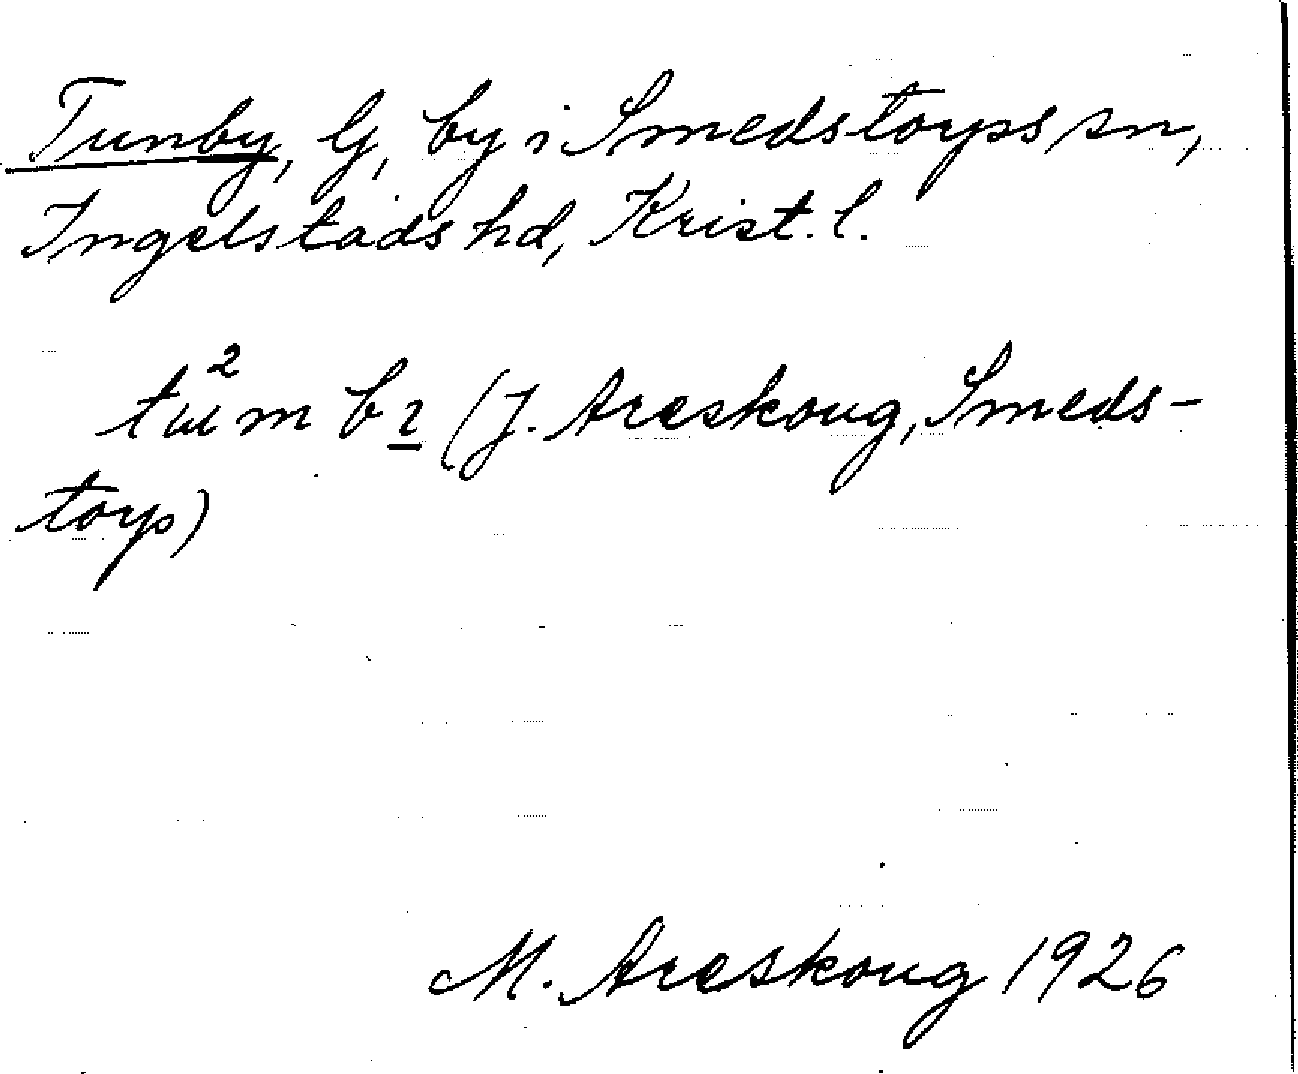 Tunby, G, by i Smedstorps sn,
Ingelstads hd, Krist. l.
(J. Areskoug, Smeds-
torp)
M. Areskoug 1926